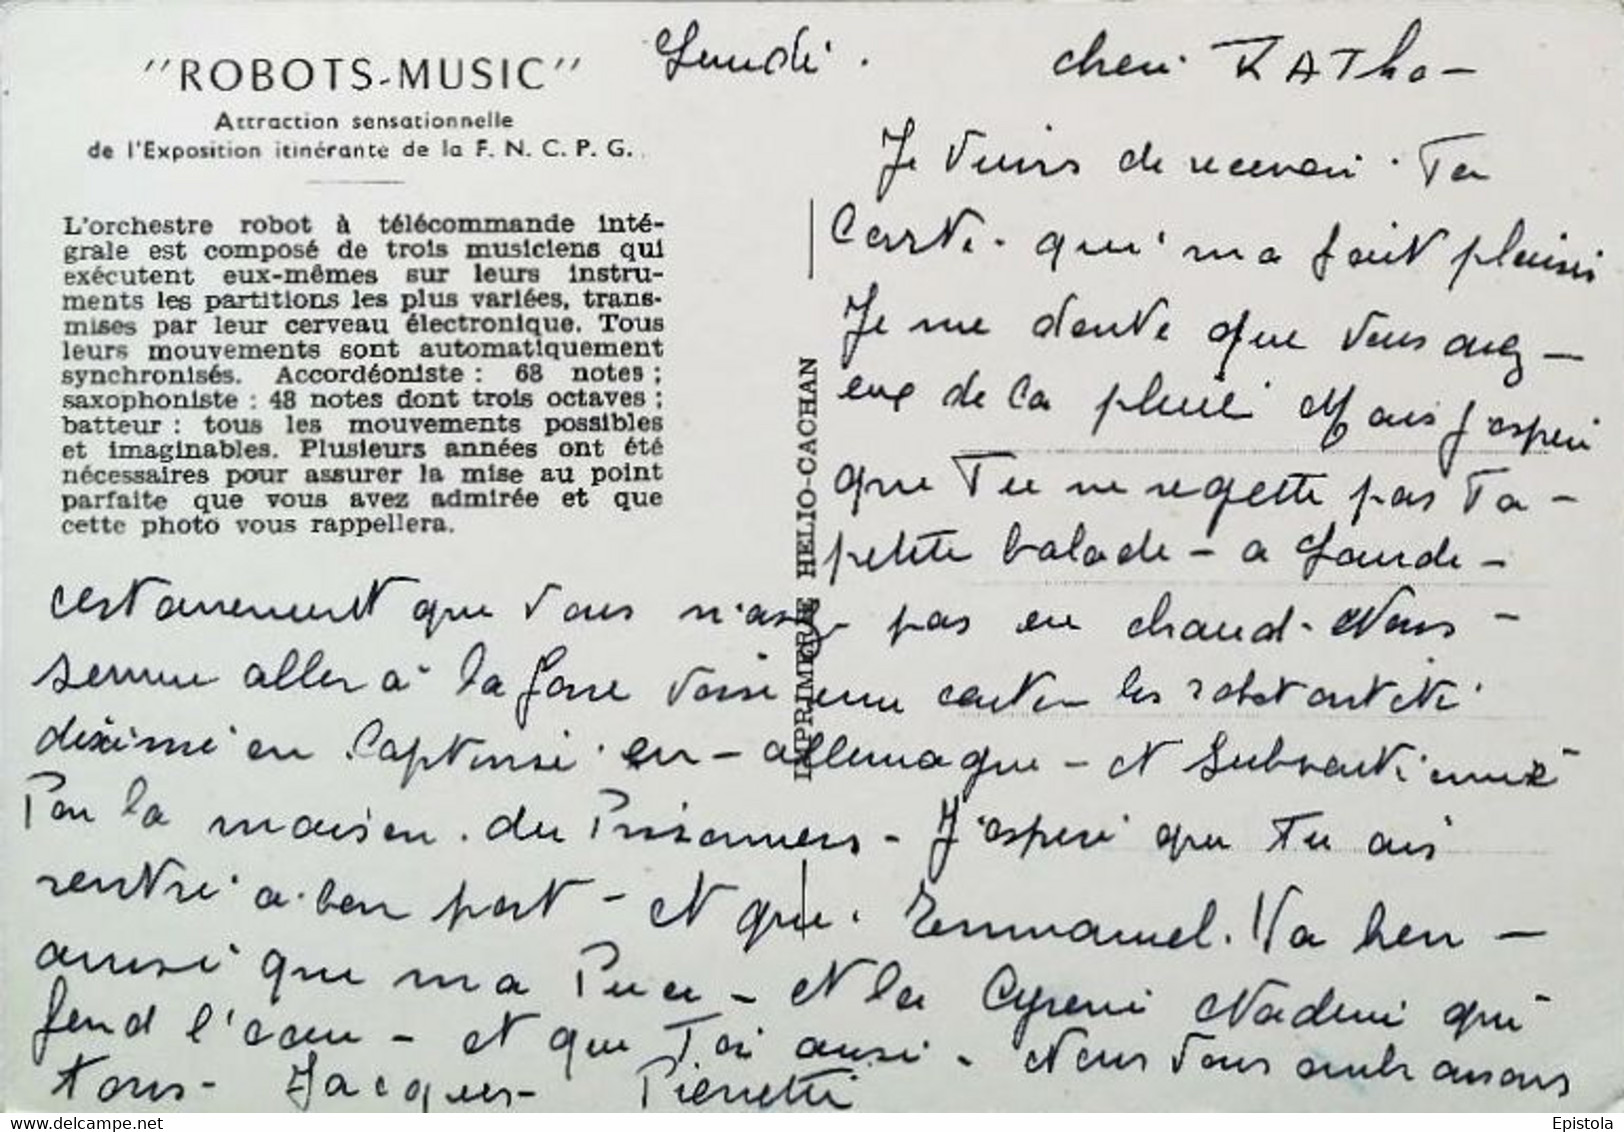 "ROBOTS-MUSIC"
Attraction sensationnelle
de l'Exposition itinérante de la F. N. C. P. G.
L'orchestre robot à télécommande inté-
grale est composé de trois musiciens qui
exécutent eux-mêmes sur leurs instru-
ments les partitions les plus variées, trans-
mises par leur cerveau électronique. Tous
leurs mouvements sont automatiquement
synchronisés. Accordéoniste : 68 notes ;
saxophoniste : 48 notes dont trois octaves ;
batteur : tous les mouvements possibles
et imaginables. Plusieurs années ont été
nécessaires pour assurer la mise au point
parfaite que vous avez admirée et que
cette photo vous rappellera.
IMPRIMERIE HELIO-CACHAN
Lundi.
cheri KATho-
Je viens de recevoir Ta
Carte qui m'a fait plaisir
Je me doute que vous avez
eu de la pluie Mais J'espere
que Tu ne regette pas Ta
petite balade - a
certainement que vous n'avez pas eu chaud. Nous
somme aller à la Gare voire une les robot
en Captivité en allemagne - et
Par la maison du Prisonniers - J'espere que Tu ais
rentré a bon port - et que Emmanuel Va bien
aussi que ma Puce - et la Nadine qui
fend l'coeur - et que Toi aussi - Nous Vous embrassons
tous - Jacques - Pierrette
Epistola